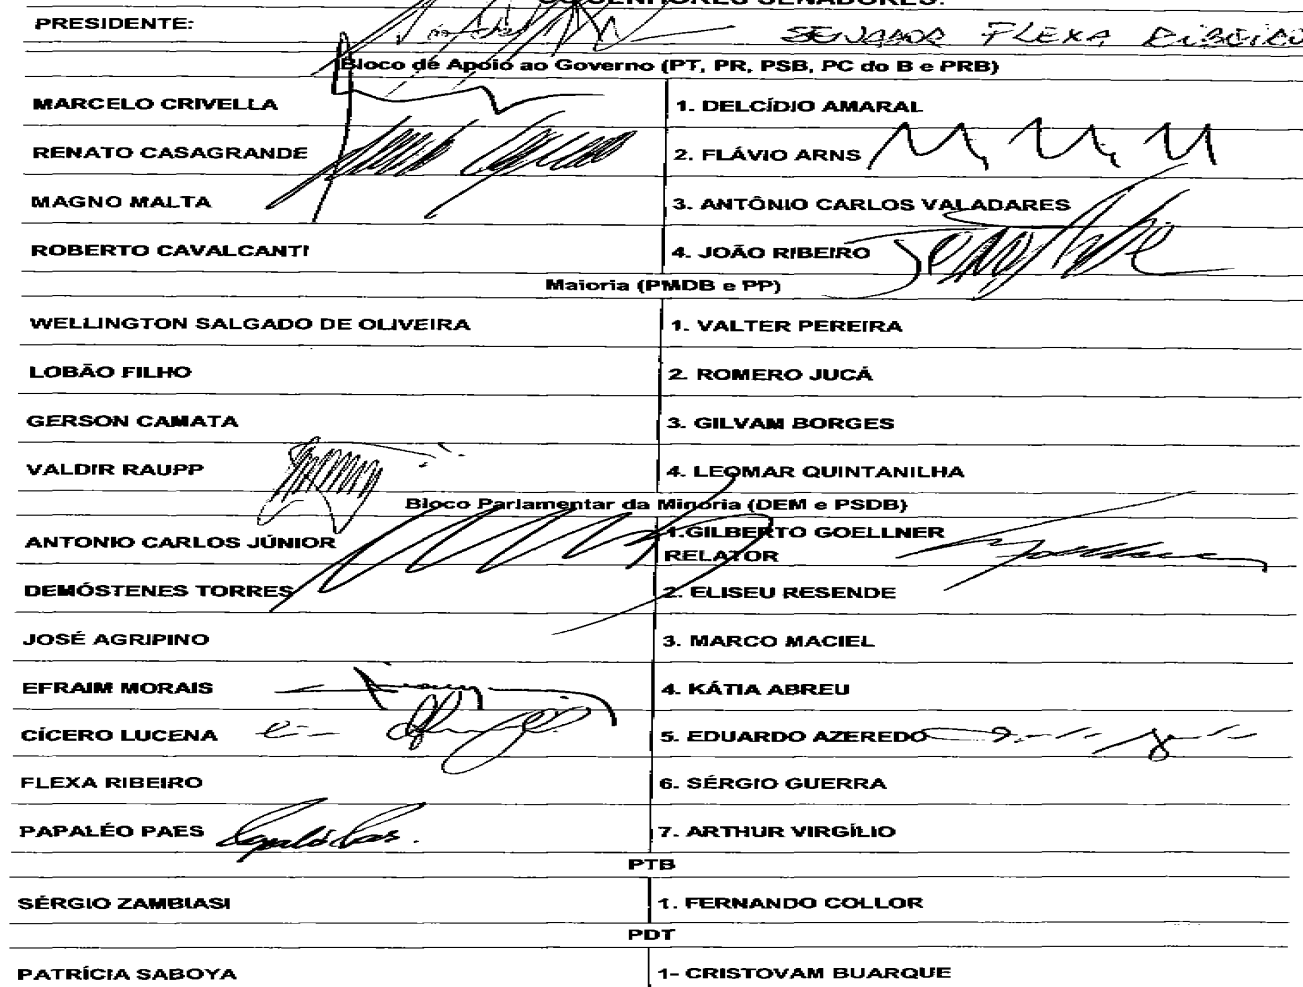 OS SENHORES SENADORES:
PRESIDENTE: SENADOR FLEXA RIBEIRO
Bloco de Apoio ao Governo (PT, PR, PSB, PC do B e PRB)
MARCELO CRIVELLA 1. DELCÍDIO AMARAL
RENATO CASAGRANDE 2. FLÁVIO ARNS
MAGNO MALTA 3. ANTÔNIO CARLOS VALADARES
ROBERTO CAVALCANTI 4. JOÃO RIBEIRO
Maioria (PMDB e PP)
WELLINGTON SALGADO DE OLIVEIRA 1. VALTER PEREIRA
LOBÃO FILHO 2. ROMERO JUCÁ
GERSON CAMATA 3. GILVAM BORGES
VALDIR RAUPP 4. LEOMAR QUINTANILHA
Bloco Parlamentar da Minoria (DEM e PSDB)
ANTONIO CARLOS JÚNIOR 1.GILBERTO GOELLNER
RELATOR
DEMÓSTENES TORRES 2. ELISEU RESENDE
JOSÉ AGRIPINO 3. MARCO MACIEL
EFRAIM MORAIS 4. KÁTIA ABREU
CÍCERO LUCENA 5. EDUARDO AZEREDO
FLEXA RIBEIRO 6. SÉRGIO GUERRA
PAPALÉO PAES 7. ARTHUR VIRGÍLIO
PTB
SÉRGIO ZAMBIASI 1. FERNANDO COLLOR
PDT
PATRÍCIA SABOYA 1- CRISTOVAM BUARQUE